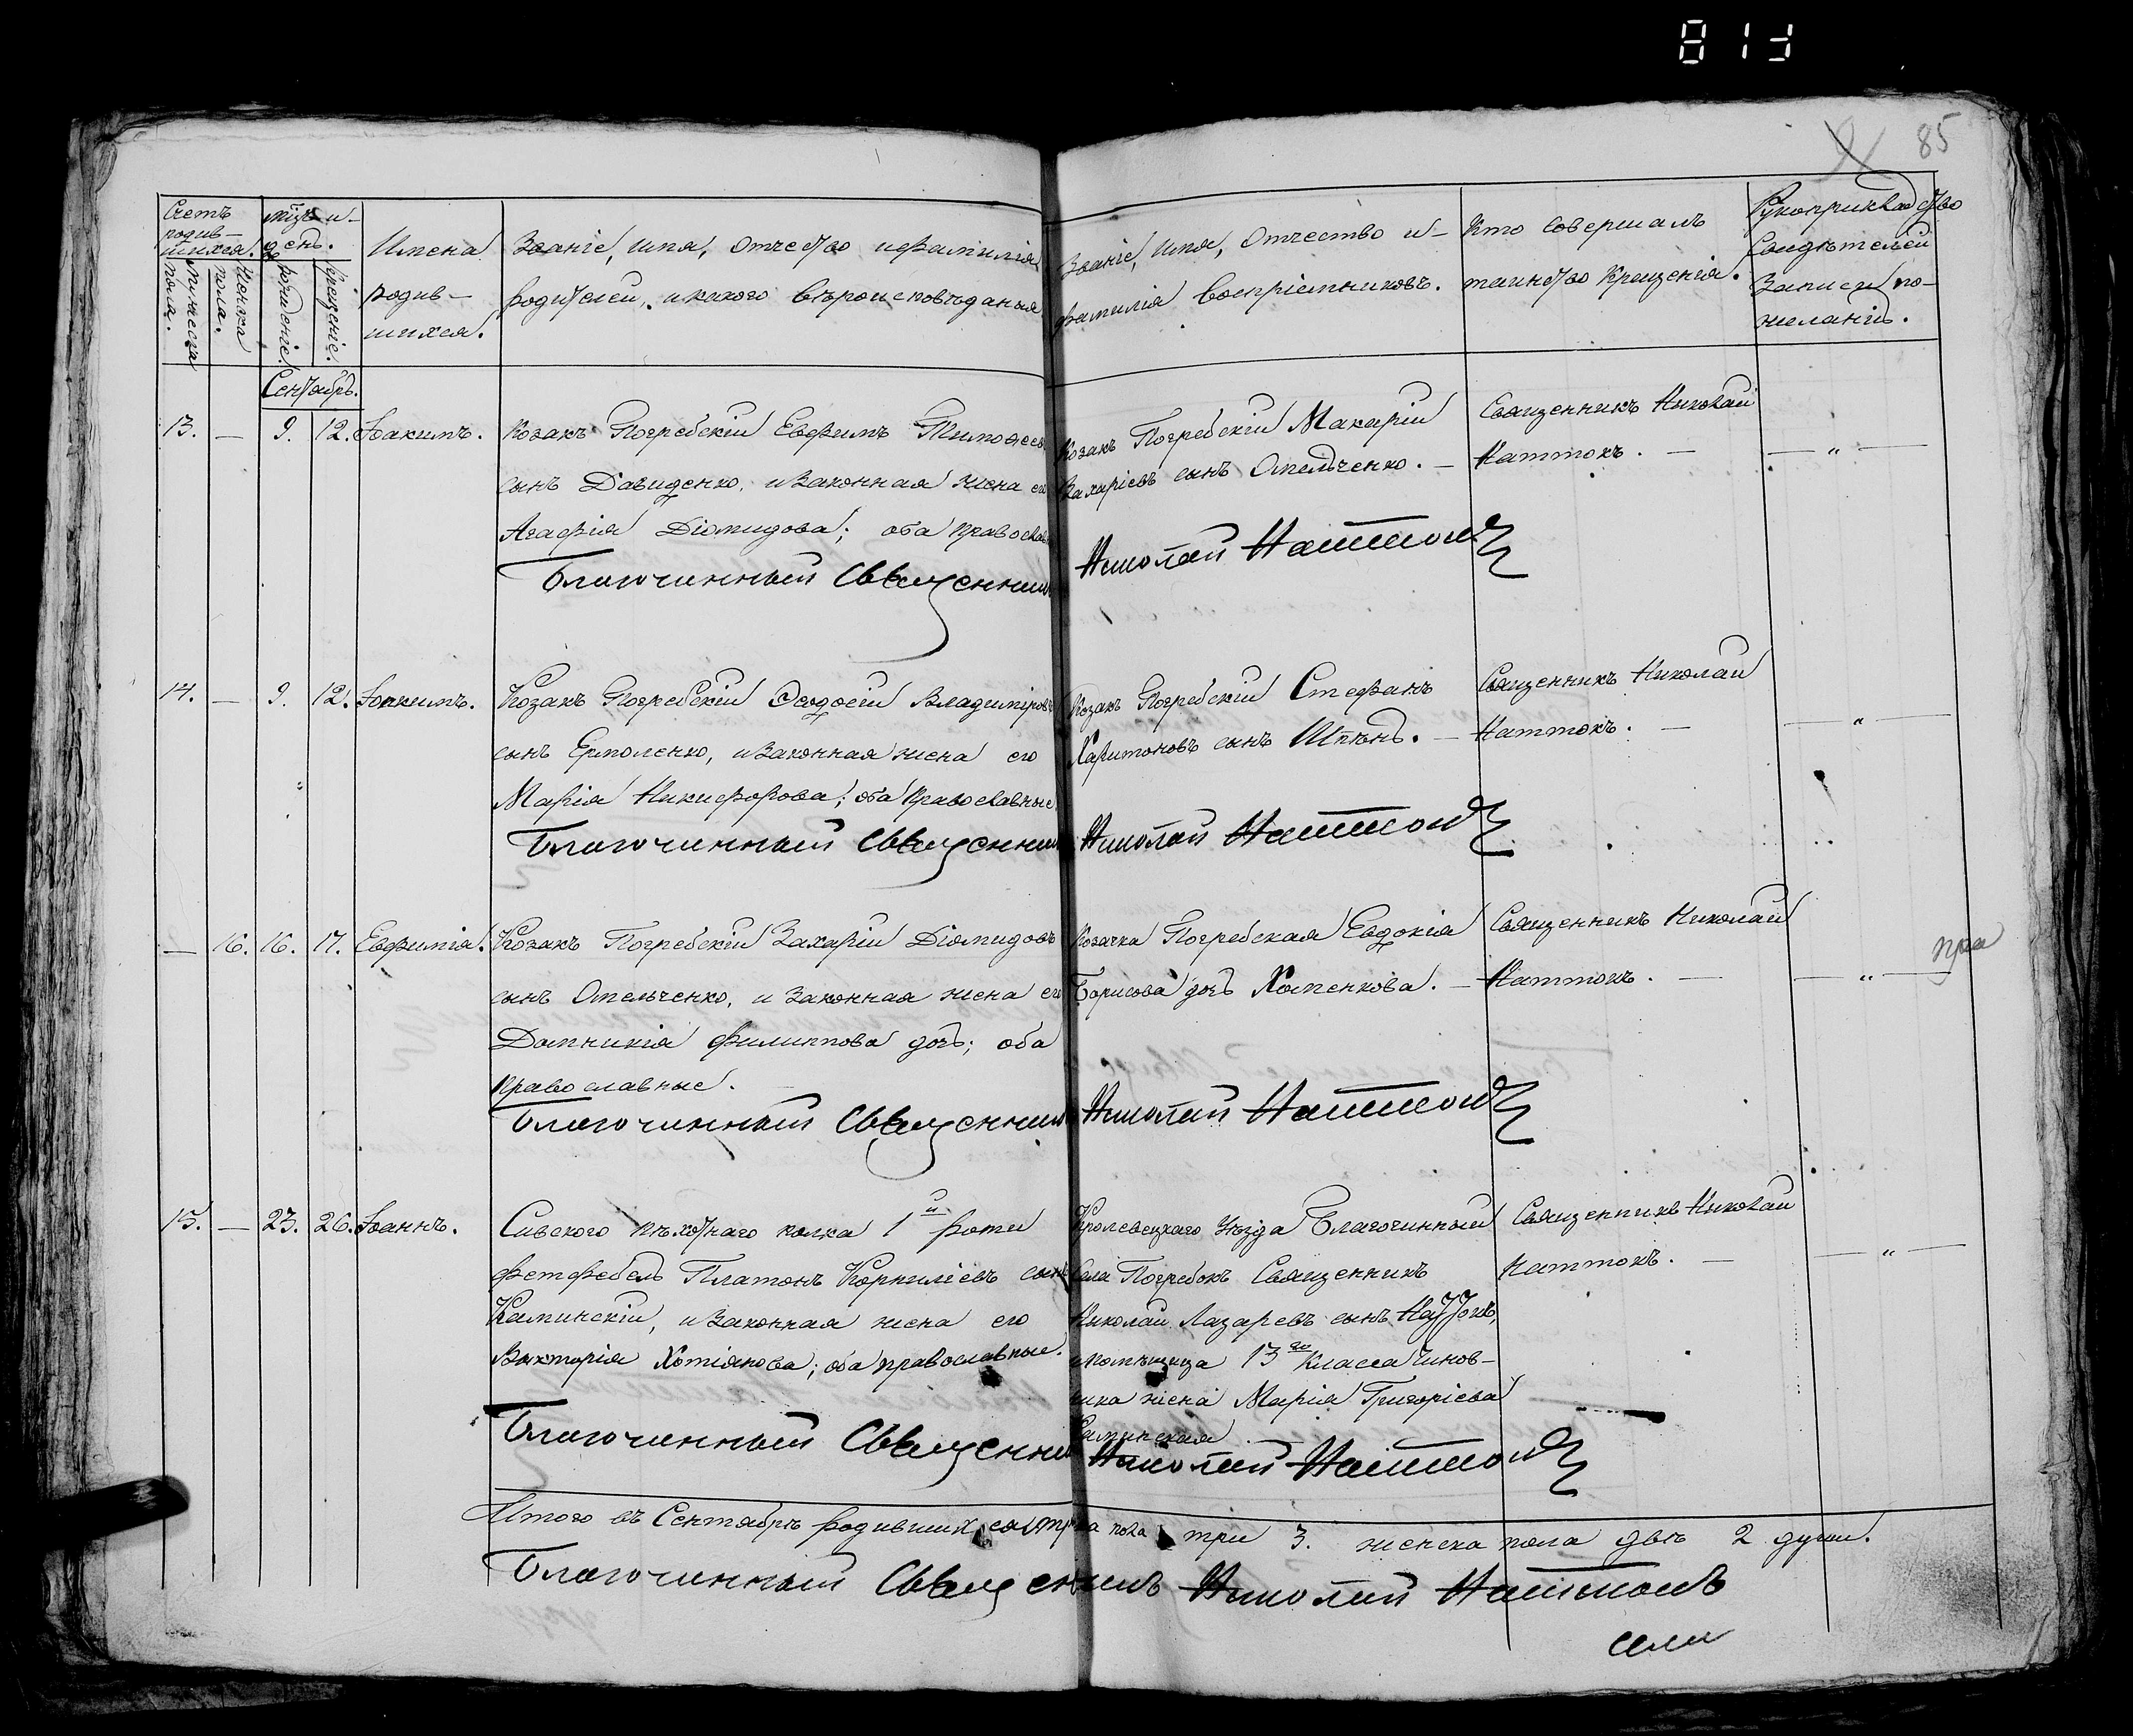 813
91 85
Счетъ
родив-
шихся.
мѣц: и-
день.
мужеска
пола.
женска
пола.
рожденіе.
крещеніе.
Имена
родив-
шихся.
Званіе, имя, отчество и фамилія
родителей, и какого вѣроисповѣданія
Званіе, имя, отчество и-
фамилія воспріемниковъ.
Кто совершалъ
таинство крещенія.
Рукоприкладство
свидѣтелей
записи по-
желанію.
Сентябрь.
13. — 9. 12. Іоакимъ.
Козакъ Погребскій Евфимъ Тимофеевъ
сынъ Давиденко, и законная жена его
Агафія Діомидова; оба православ
Козакъ Погребскій Макарій
Захаріевъ сынъ Омельченко. —
Священникъ Николай
Наттокъ. —
— „ —
Благочинный Священник Николай Наттокъ
14. — 9. 12. Іоакимъ.
Козакъ Погребскій Феодосій Владиміровъ
сынъ Ермоленко, и законная жена его
Марія Никифорова; оба православные.
Козакъ Погребскій Стефанъ
Харитоновъ сынъ Шпѣнь. —
Священникъ Николай
Наттокъ. —
— „ —
Благочинный Священник Николай Наттокъ
— 16. 16. 17. Евфимія.
Козакъ Погребскій Захарій Діомидовъ
сынъ Омельченко, и законная жена его
Домникія Филиппова дочь; оба
православные.
Козачка Погребская Евдокія
Борисова дочь Хоменкова. —
Священникъ Николай
Наттокъ. —
— „ —
пра
Благочинный Священник Николай Наттокъ
15. — 23. 26. Іоаннъ.
Сивского пѣхотнаго полка 1й роти
фетфебель Платонъ Корниліевъ сынъ
Каминскій, и законная жена его
Викторія Хотіянова; оба православные.
Кролевецкаго уѣзда Благочинный
села Погребокъ Священникъ
Николай Лазаревъ сынъ Наттокъ,
и помѣщица 13го класса чинов-
ника жена Марія Григоріева
Каминская
Священникъ Николай
Наттокъ. —
— „ —
Благочинный Священник Николай Наттокъ
Итого въ Сентябрѣ родившихся пола три 3. женска пола двѣ 2 души.
Благочинный Священникъ Николай Наттокъ
села